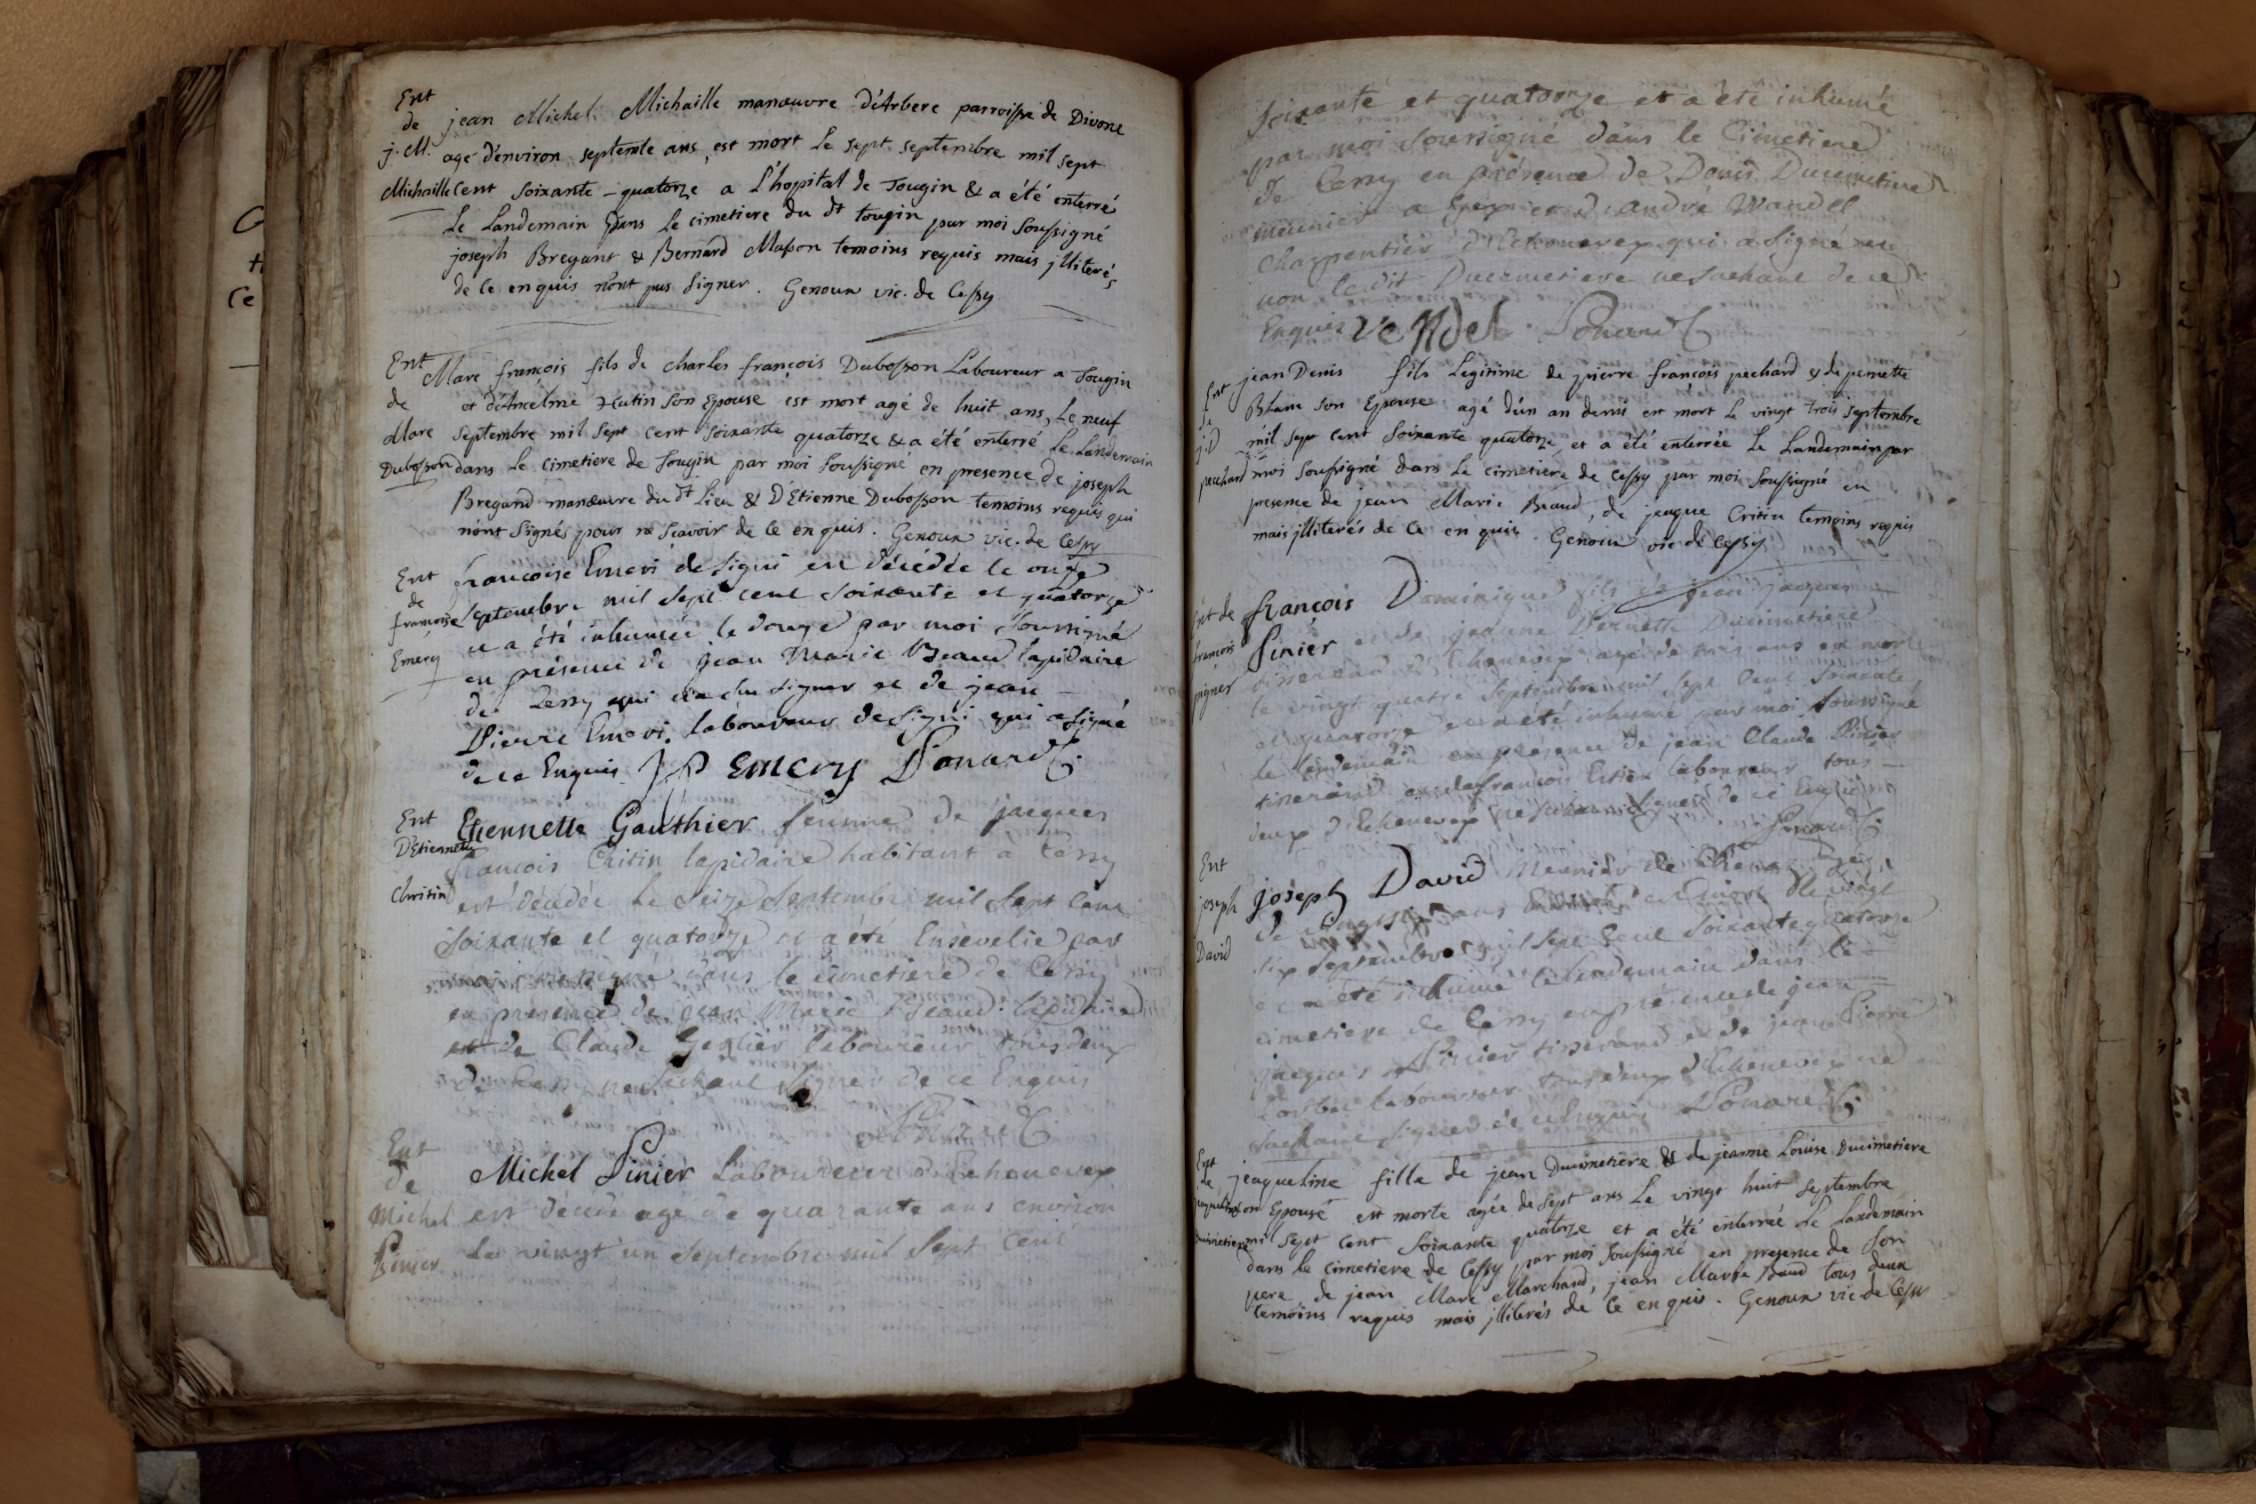 Ent
de
j. M.
Michaille
jean Michel Michaille manœuvre d'Arbere parroisse de Divone
agé d'environ septente ans, est mort le sept septembre mil sept
cent soixante-quatorze a L'hopital de Tougin & a été enterré
le Landemain dans le cimetiere du dt tougin par moi soussigné
joseph Bregant & Bernard Masson temoins requis mais jlliterés
de ce enquis n'ont pas signer. Genoux vic. de Cessy
Ent
de
Marc
Dubosson
Marc françois fils de charles françois Dubosson Laboureur a Tougin
et d'Ancelme Hutin son Epouse est mort agé de huit ans, Le neuf
septembre mil sept cent soixante quatorze & a été enterré le Landemain
dans le cimetiere de Tougin par moi soussigné en presence de joseph
Bregand manœuvre du dt Lieu & D'Etienne Dubosson temoins requis qui
n'ont signés pour ne scavoir de ce enquis. Genoux vic. de Cessy
Ent
de
françoise
Emery
francoise Emeri de signi est décédée le onze
septembre mil sept cent soixante et quatorze
et a été inhumée le douze par moi soussigné
en présence de jean Marie Beaud lapidaire
de Cessy qui n'a su signer et de jean
Pierre Emeri laboureur de signi qui a signé
de ce Enquis J P Emery Ponard
Ent
D'Etiennette
Christin
Etiennette Gauthier femme de jacques
francois Critin lapidaire habitant à Cessy
est décédée le seize septembre mil sept cent
soixante et quatorze et a été Ensevelie par
moi soussigné dans le cimetiere de Cessy
en presence de jean Marie Beaud lapidaire
et de Claude laboureur tous deux
de Cessy ne sachant signer de ce Enquis
Ponard
Ent
de
Michel
Pinier
Michel Pinier Laboureur d'Echenevex
est décédé agé de quarante ans environ
le vingt un septembre mil sept cent
soixante et quatorze et a été inhumé
par moi soussigné dans le Cimetiere
de Cessy en présence de Denis Ducimetiere
meunier a Gex et d'andré Wandel
charpentier d'Echenevex qui a signé
non ledit Ducimetiere ne sachant de ce
Enquis Vendel Ponard
Ent
de
j: D
pechard
jean Denis fils Legitime de pierre françois pechard & de pernette
Blanc son Epouse agé d'un an demi est mort le vingt trois septembre
mil sept cent soixante quatorze, et a été enterrée le Landemain par
moi soussigné dans le cimetiere de Cessy par moi soussigné en
presence de jean Marie Beaud, de jaque Critin temoins requis
mais jlliterés de ce en quis. Genoux vic de Cessy
Ent de
françois
pignier
françois Dominique fils de jean jacques
Pinier et de jeanne Pernette Ducimetiere
tisserand d'Echenevex agé de ans est mort
le vingt quatre septembre mil sept cent soixante
et quatorze et a été inhumé par moi soussigné
le lendemain en presence de jean Claude Pinier
tisserand et de françois laboureur tous
deux d'Echenevex ne signer de ce Enquis
Ponard
Ent
joseph
David
joseph David Meunier de
de ans est mort le vingt
six septembre mil sept cent soixante quatorze
et a été inhumé le lendemain dans le
cimetiere de Cessy en présence de jean
jacques Pinier tisserand et de jean Pierre
laboureur tous deux d'Echenevex ne
sachant signer de ce Enquis Ponard
Ent
de
jaqueline
Ducimetiere
jeaqueline fille de jean Ducimetière & de jeanne Louise Ducimetiere
son Epouse est morte agée de sept ans Le vingt huit septembre
mil sept cent soixante quatorze et a été enterrée le Landemain
dans le cimetiere de Cessy par moi soussigné en presence de son
pere, de jean Marc Marchand, jean Marie Beaud tous deux
temoins requis mais jlliterés de ce enquis. Genoux vic. de Cessy